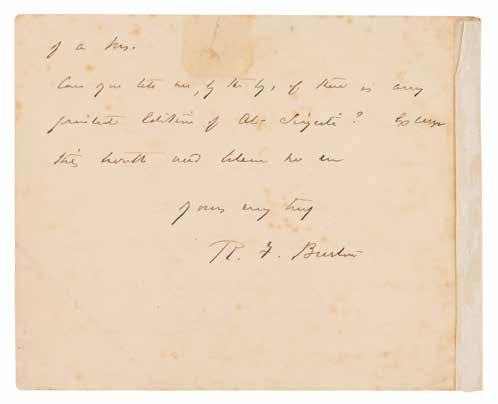 of a Ms.
Can you tell me, by the by, if there is any
printed Edition of Al- Siyuti? Excuse
this trouble and believe me
Yours very truly
R. F. Burton